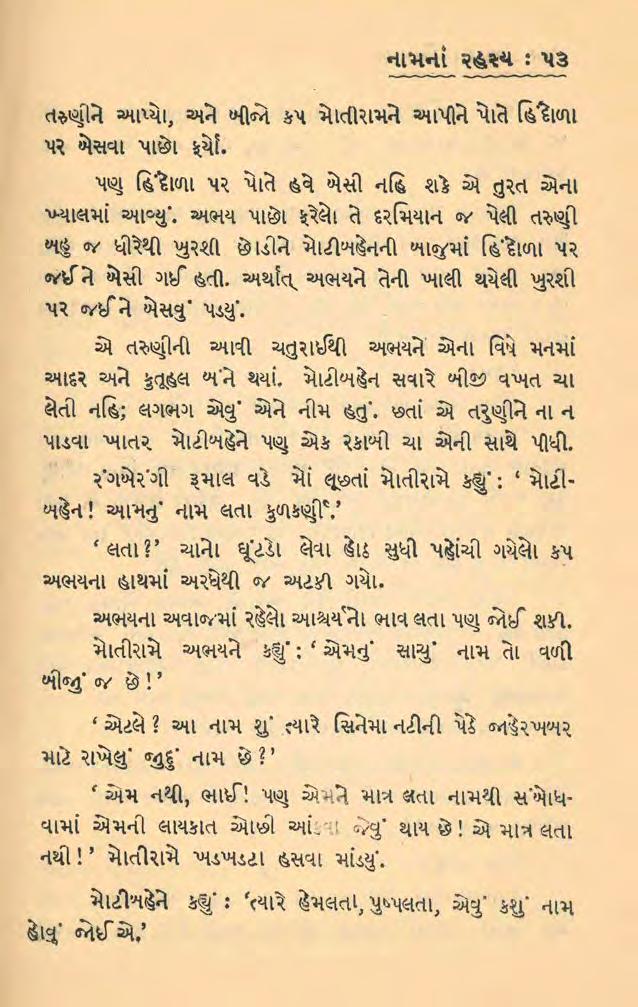 નામનાં રહસ્ય : ૫૩
તરુણીને આપ્યો, અને બીજો કપ મોતીરામને આપીને પોતે હિંદોળા
પર બેસવા પાછો ફર્યો.
પણ હિંદોળા પર પોતે હવે બેસી નહિ શકે એ તુરત એના
ખ્યાલમાં આવ્યું. અભય પાછો ફરેલો તે દરમિયાન જ પેલી તરુણી
બહુ જ ધીરેથી ખુરશી છોડીને મોટીબહેનની બાજુમાં હિંદોળા પર
જઈને બેસી ગઈ હતી. અર્થાત્ અભયને તેની ખાલી થયેલી ખુરશી
પર જઈને બેસવું પડ્યું.
એ તરુણીની આવી ચતુરાઈથી અભયને એના વિષે મનમાં
આદર અને કુતૂહલ બંને થયાં. મોટીબહેન સવારે બીજી વખત ચા
લેતી નહિ; લગભગ એવું એને નીમ હતું. છતાં એ તરુણીને ના ન
પાડવા ખાતર મોટીબહેને પણ એક રકાબી ચા એની સાથે પીધી.
રંગબેરંગી રૂમાલ વડે મોં લૂછતાં મોતીરામે કહ્યું : ‘ મોટી-
બહેન! આમનું નામ લતા કુળકર્ણી.’
‘ લતા ?’ ચાનો ઘૂંટડો લેવા હોઠ સુધી પહોંચી ગયેલો કપ
અભયના હાથમાં અરધેથી જ અટકી ગયો.
અભયના અવાજમાં રહેલો આશ્ચર્યનો ભાવ લતા પણ જોઈ શકી.
મોતીરામે અભયને કહ્યું : ‘ એમનું સાચું નામ તો વળી
બીજું જ છે !’
‘ એટલે ? આ નામ શું ત્યારે સિનેમા નટીની પેઠે જાહેરખબર
માટે રાખેલું જુદું નામ છે ?’
‘ એમ નથી, ભાઈ! પણ એમને માત્ર લતા નામથી સંબોધ-
વામાં એમની લાયકાત ઓછી આંકવા જેવું થાય છે ! એ માત્ર લતા
નથી !’ મોતીરામે ખડખડટા હસવા માંડયું.
મોટીબહેને કહ્યું : ‘ત્યારે હેમલતા, પુષ્પલતા, એવું કશું નામ
હોવું જોઈએ.’